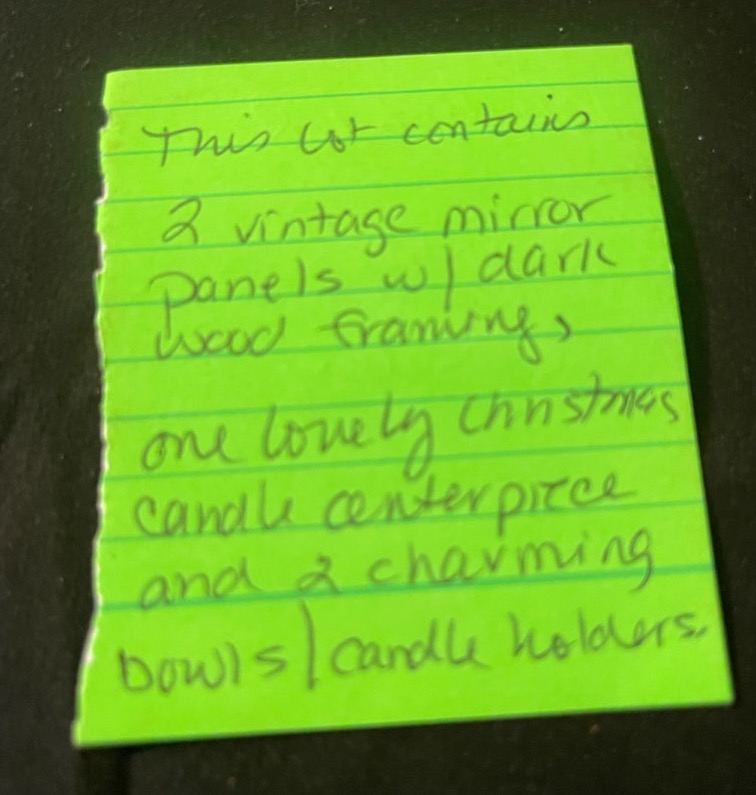 This lot contains
2 vintage mirror
panels w/ dark
wood framing,
one lovely Christmas
candle centerpiece
and 2 charming
bowls/candle holders.